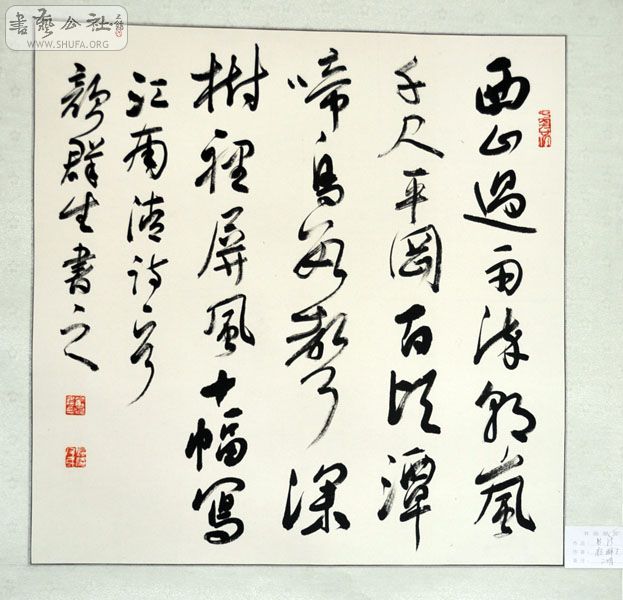 書藝公社
WWW.SHUFA.ORG
西山過雨染朝嵐
千尺平岡百頃潭
啼鳥數聲深
樹裡屏風十幅寫
江南清詩一首
顏群生書之